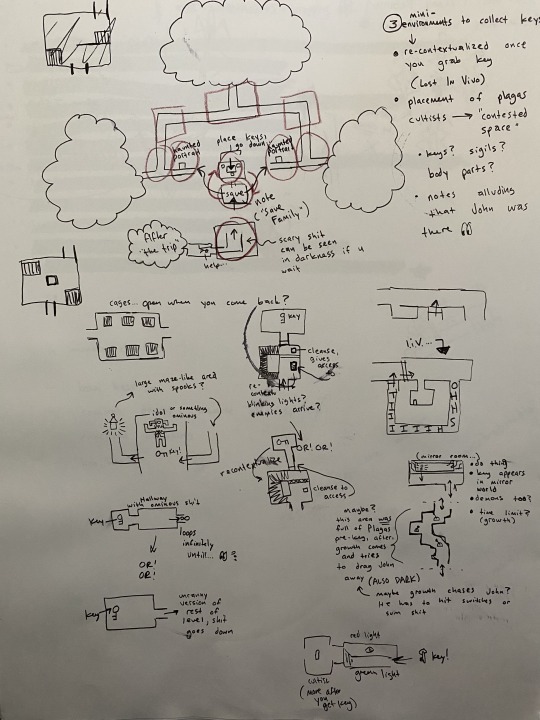 ③ mini-
environments to collect keys
• re-contextualized once
you grab key
(Lost In Vivo)
• placement of plagas
cultists → "contested
space"
• keys? sigils?
body parts?
• notes alluding
that John was
there
haunted
portrait
place keys,
go down
haunted
portrait
save
note
"save
Family")
After
"the trip"
help...
scary shit
can be seen
in darkness if u
wait
cages... open when you come back?
key
cleanse,
gives
access
re-
context
blinking lights?
enemies arrive?
large maze-like area
with spooks?
idol
or something
ominous
OR! OR!
recontextualize
cleanse to
access
L.I.V...
OHHS
IIIII
(mirror room...)
• do thing
• key appears
in mirror
world
• demons too?
• time limit?
(growth)
Hallway
with ominous shit
key
loops
infinitely
untill...
?
OR!
OR!
key
uncanny
version of
rest of
level, shit
goes down
maybe?
this area was
full of Plagas
pre-key, after,
growth comes
and tries
to drag John
away (ALSO DARK)
maybe growth chases John?
He has to hit switches or
sum shit
red light
key!
green light
cultist
(more after
you
get key)